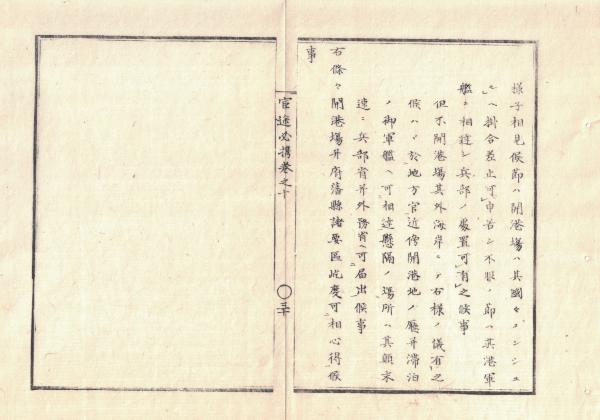 様子相見候節ハ開港場ハ其國々コンシユ
ルヘ掛合差止可申若シ不服ノ節ハ其港軍
艦ニ相達シ兵部ノ處置可有之候事
但不開港場其外海岸ニテ右様ノ儀有之
候ハヽ於地方官近傍開港地ノ廳并滞泊
ノ御軍艦ヘ可相達懸隔ノ場所ハ其顛末
速ニ兵部省并外務省ヘ可届出候事
右條々開港場并府藩縣諸要區此度可相心得候
事
官途必携巻之十
〇三十